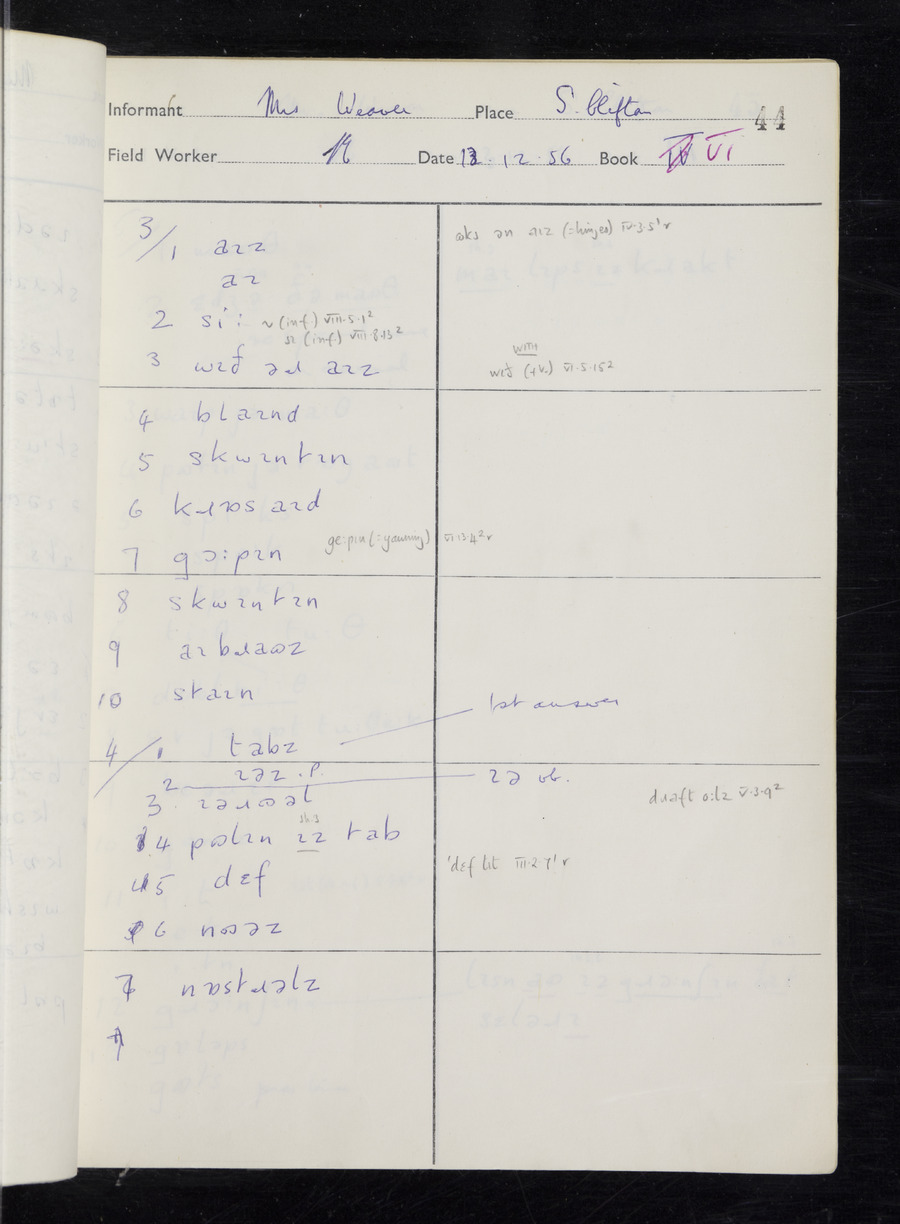 Informant Mrs Weaver Place S. Clifton 44
Field Worker Date 13.12.56 Book VI
3/1 aɪz
aɪ
2 si: ~ (inf.) VIII.5.1²
sɪ (inf.) VIII.8.13²
3 wɪð əɹ aɪz
4 blaɪnd
5 skwɪntɪn
6 kɹɒs aɪd
7 gɔ:pɪn ge:pɪn (=yawning) VI.13.4² r
8 skwɪntɪn
9 aɪbɹaʊz
10 staɪn
4/1 tabz
2 ɪəz .p.
3. ɪəɹʊəl
4 pʊlɪn ɪz tab
5 dɛf
6 nʊəz
7 nɒstɹəlz
ʊks ən aɪz (=hinges) IV.3.5¹ r
WITH
wɪð (+V.) VI.5.15²
1st answer
ɪə ob.
dɹaft o:lz V.3.9²
ˈdɛf lɪt III.2.7¹ r